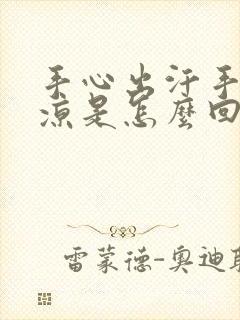 手心出汗手
凉是怎麼回
雷蒙德-奥迪耶